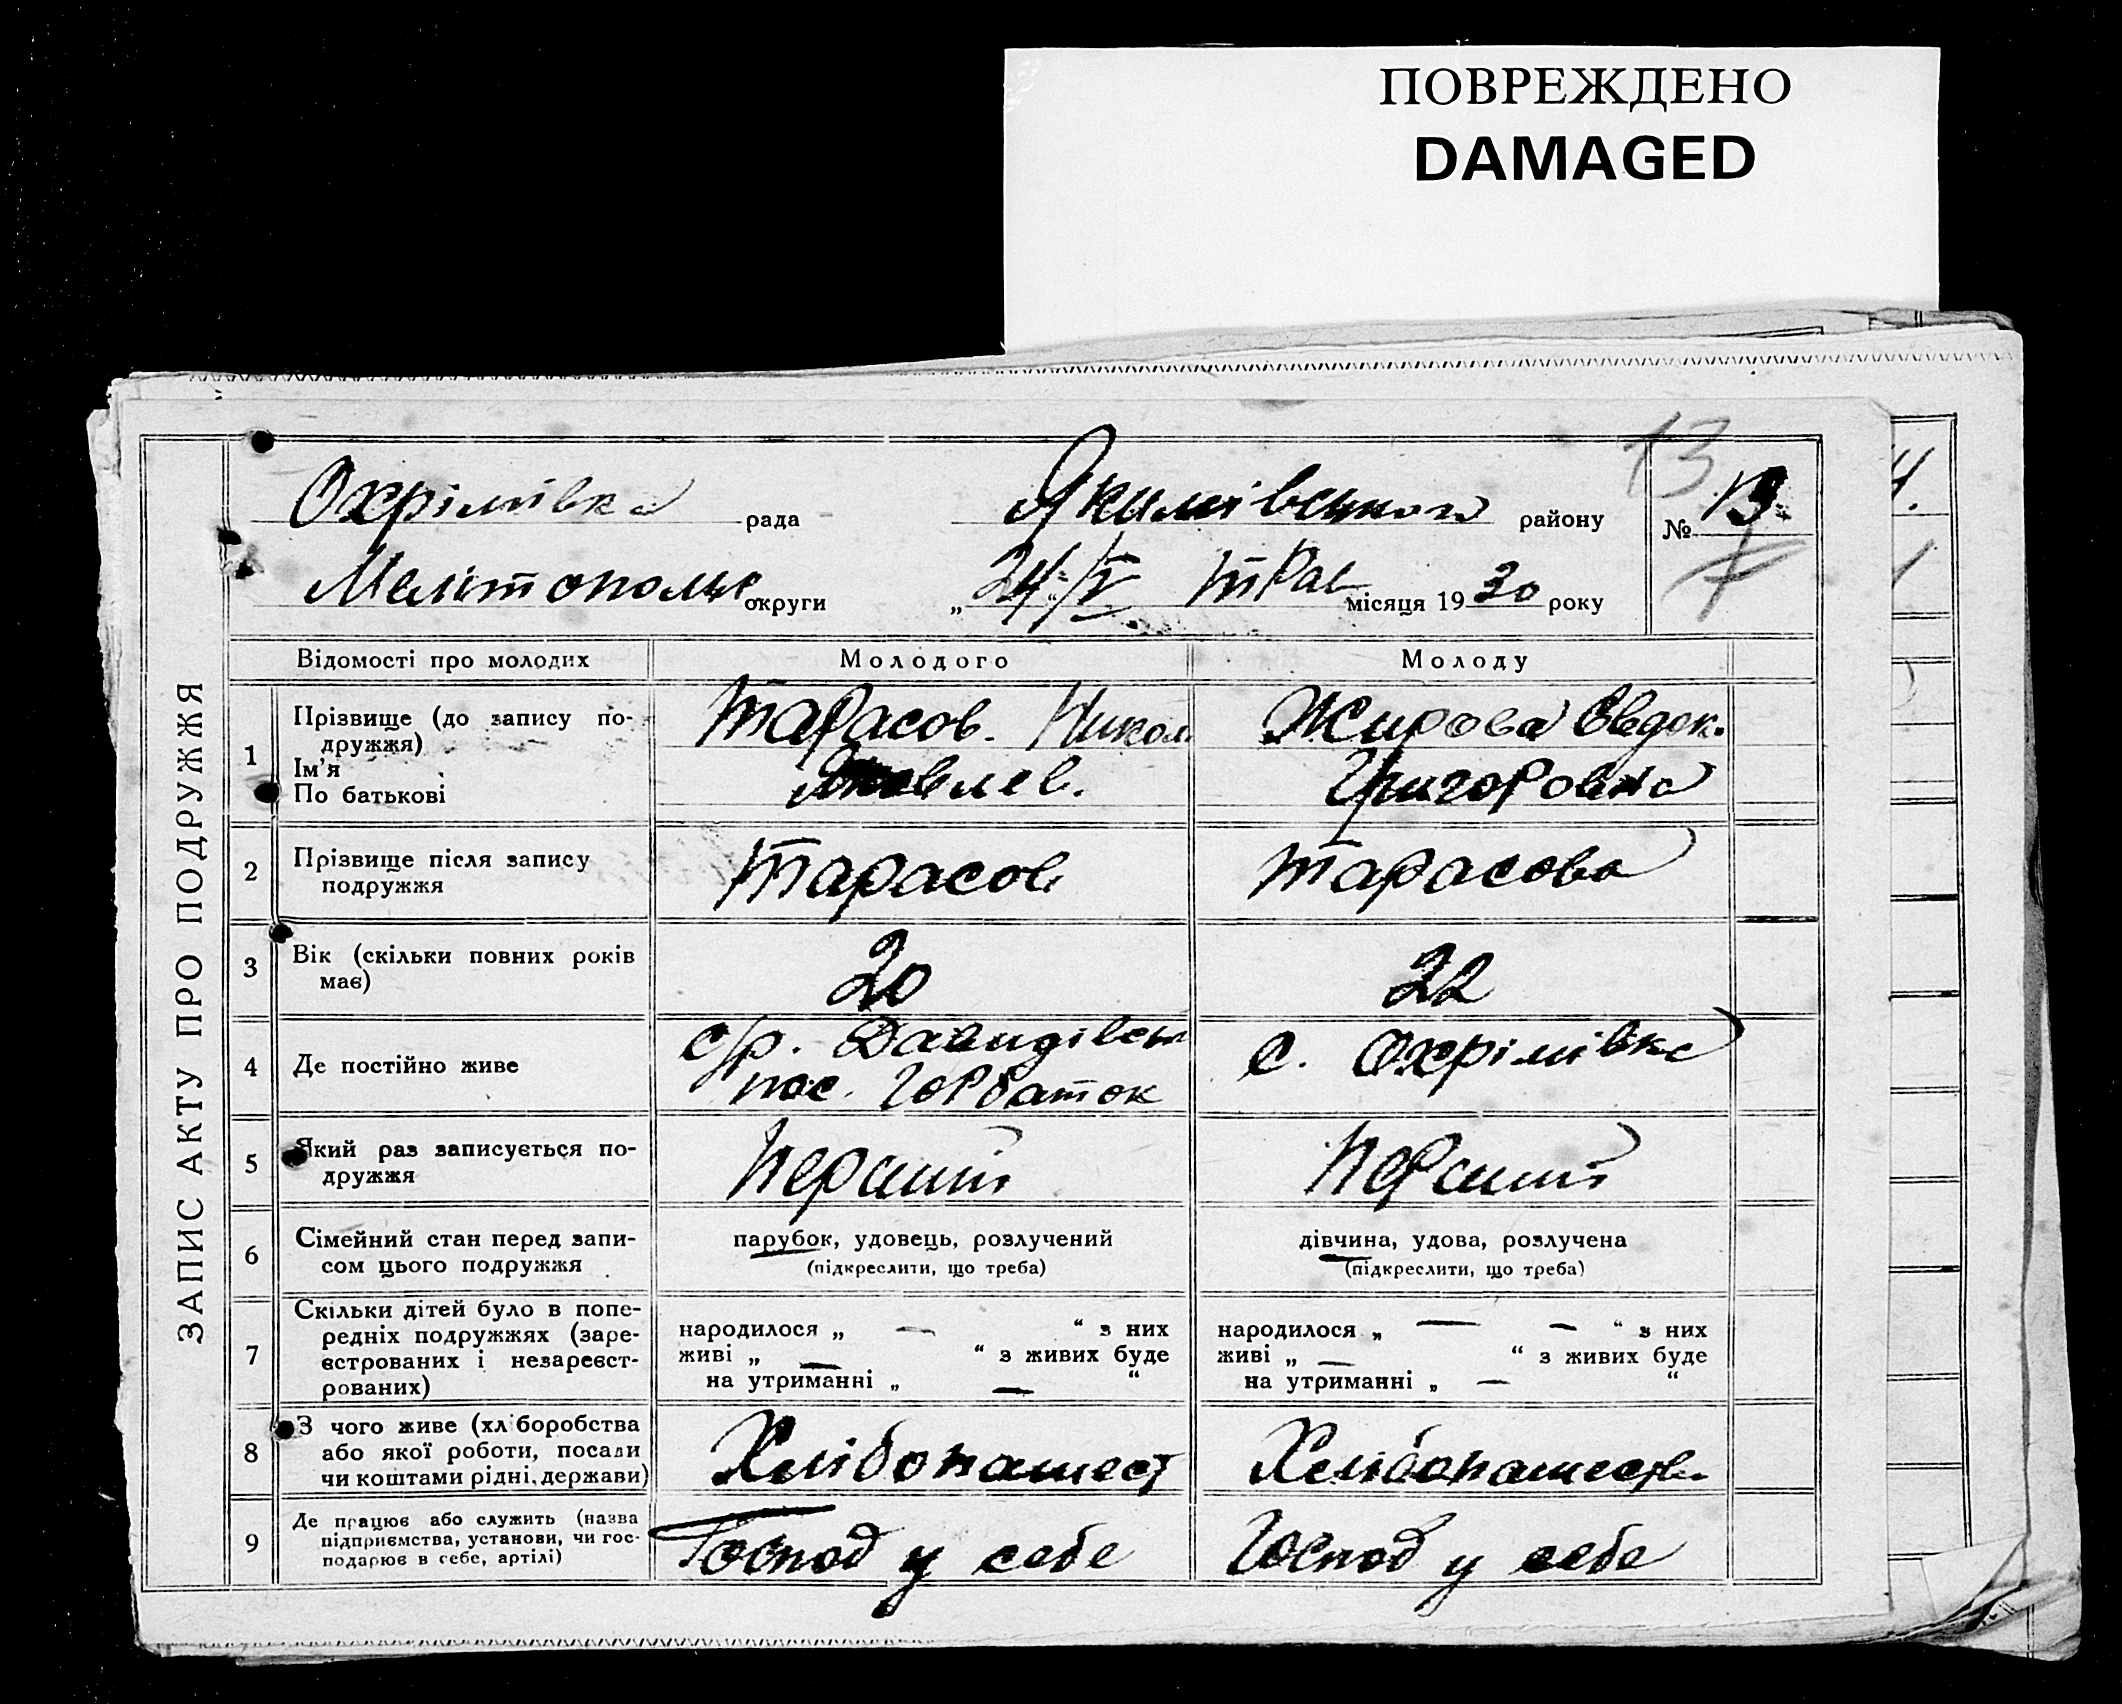 ПОВРЕЖДЕНО
DAMAGED
13
Охрімівка рада Якимівського району № 13
Мелітопольс округи „24/V“ трав місяця 1930 року
ЗАПИС АКТУ ПРО ПОДРУЖЖЯ
Відомості про молодих Молодого Молоду
1 Прізвище (до запису по-
дружжя)
Ім'я
По батькові
Тарасов. Никол
Яковлев.
Жирова Євдок.
Григоровна
2 Прізвище після запису
подружжя
Тарасов
Тарасова
3 Вік (скільки повних років
має)
20
22
4 Де постійно живе
с/р. Давидівськ
пос. Горбаток
с. Охрімівка
5 Який раз записується по-
дружжя
Перший
Перший
6 Сімейний стан перед запи-
сом цього подружжя
парубок, удовець, розлучений
(підкреслити, що треба)
дівчина, удова, розлучена
(підкреслити, що треба)
7 Скільки дітей було в попе-
редніх подружжях (заре-
єстрованих і незареєст-
рованих)
народилося „ — “ з них
живі „ — “ з живих буде
на утриманні „ — “
народилося „ — — “ з них
живі „ — “ з живих буде
на утриманні „ — “
8 З чого живе (хліборобства
або якої роботи, посади
чи коштами рідні, держави)
Хлібопашест
Хлібопашеств.
9 Де працює або служить (назва
підприємства, установи, чи гос-
подарює в себе, артілі)
Господ у себе
Господ у себе